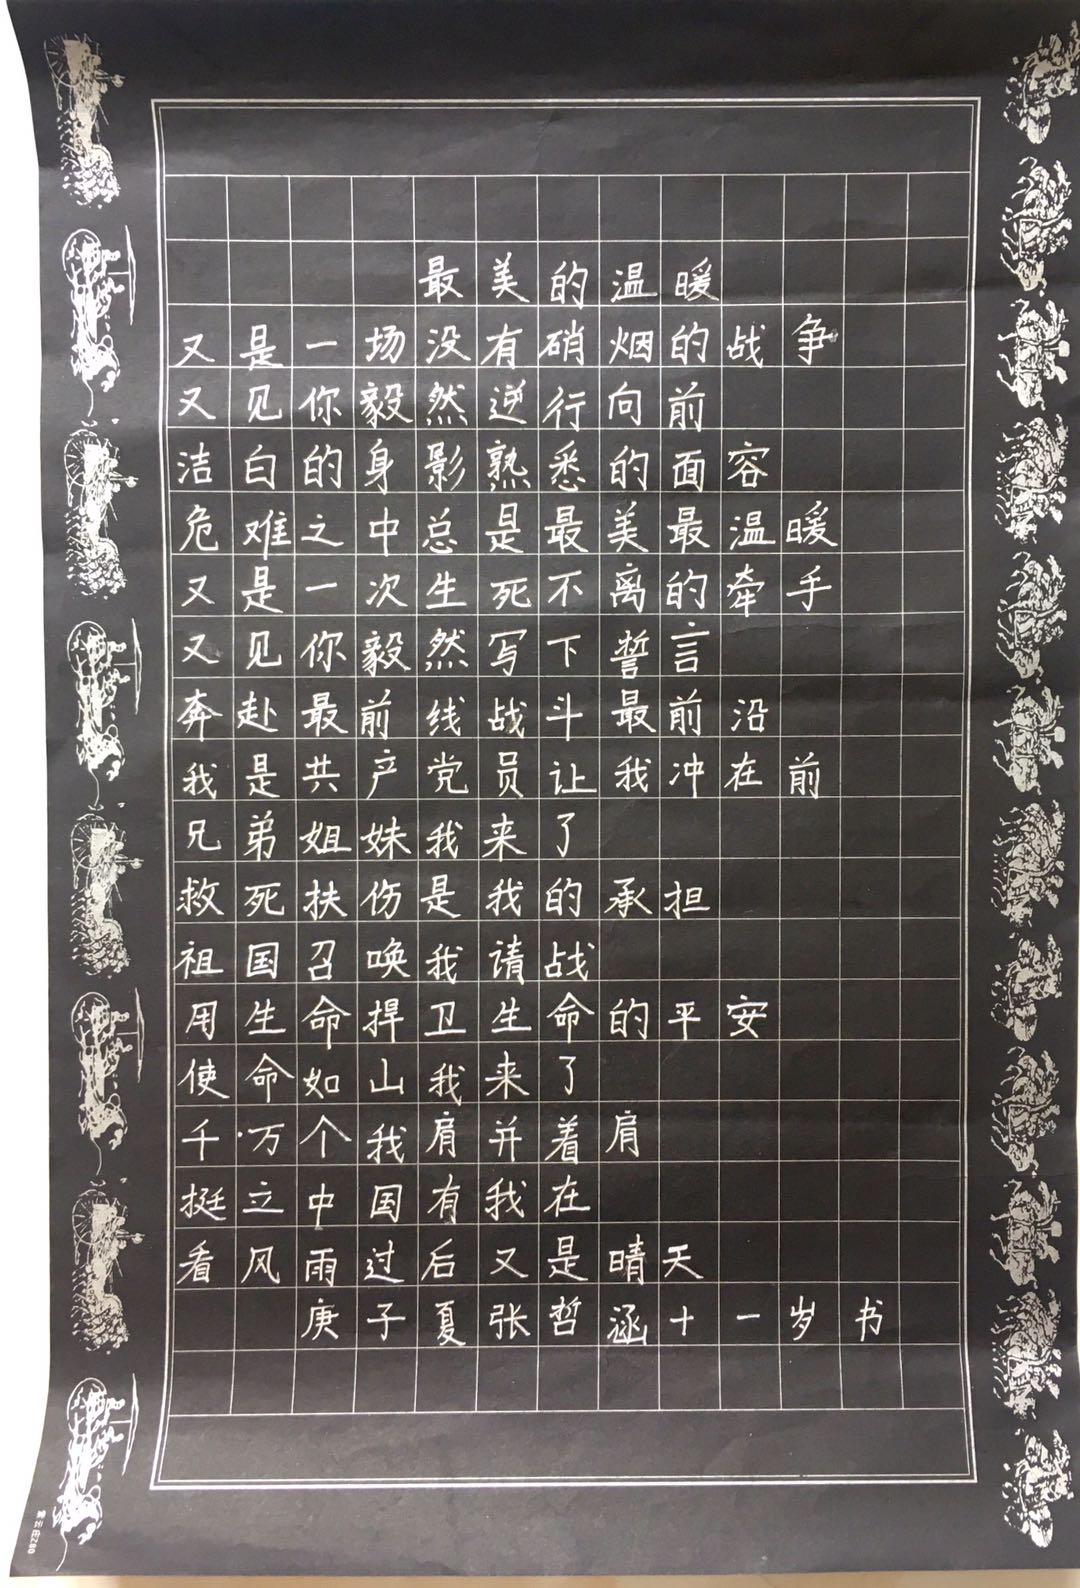 最美的温暖
又是一场没有硝烟的战争
又见你毅然逆行向前
洁白的身影熟悉的面容
危难之中总是最美最温暖
又是一次生死不离的牵手
又见你毅然写下誓言
奔赴最前线战斗最前沿
我是共产党员让我冲在前
兄弟姐妹我来了
救死扶伤是我的承担
祖国召唤我请战
用生命捍卫生命的平安
使命如山我来了
千万个我肩并着肩
挺立中国有我在
看风雨过后又是晴天
庚子夏张哲涵十一岁书